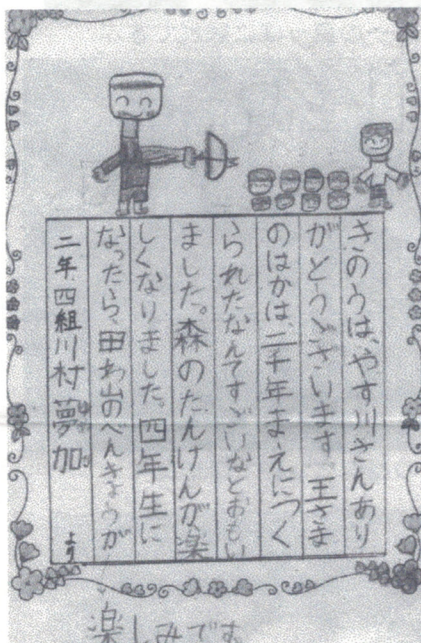 きのうは、やす川さんあり
がとうございます。王さま
のはかは、二千年まえにつく
られたなんてすごいなとおもい
ました。森のたんけんが楽
しくなりました。四年生に
なったら、田わ山のべんきょうが
楽しみです。
二年四組川村夢加より